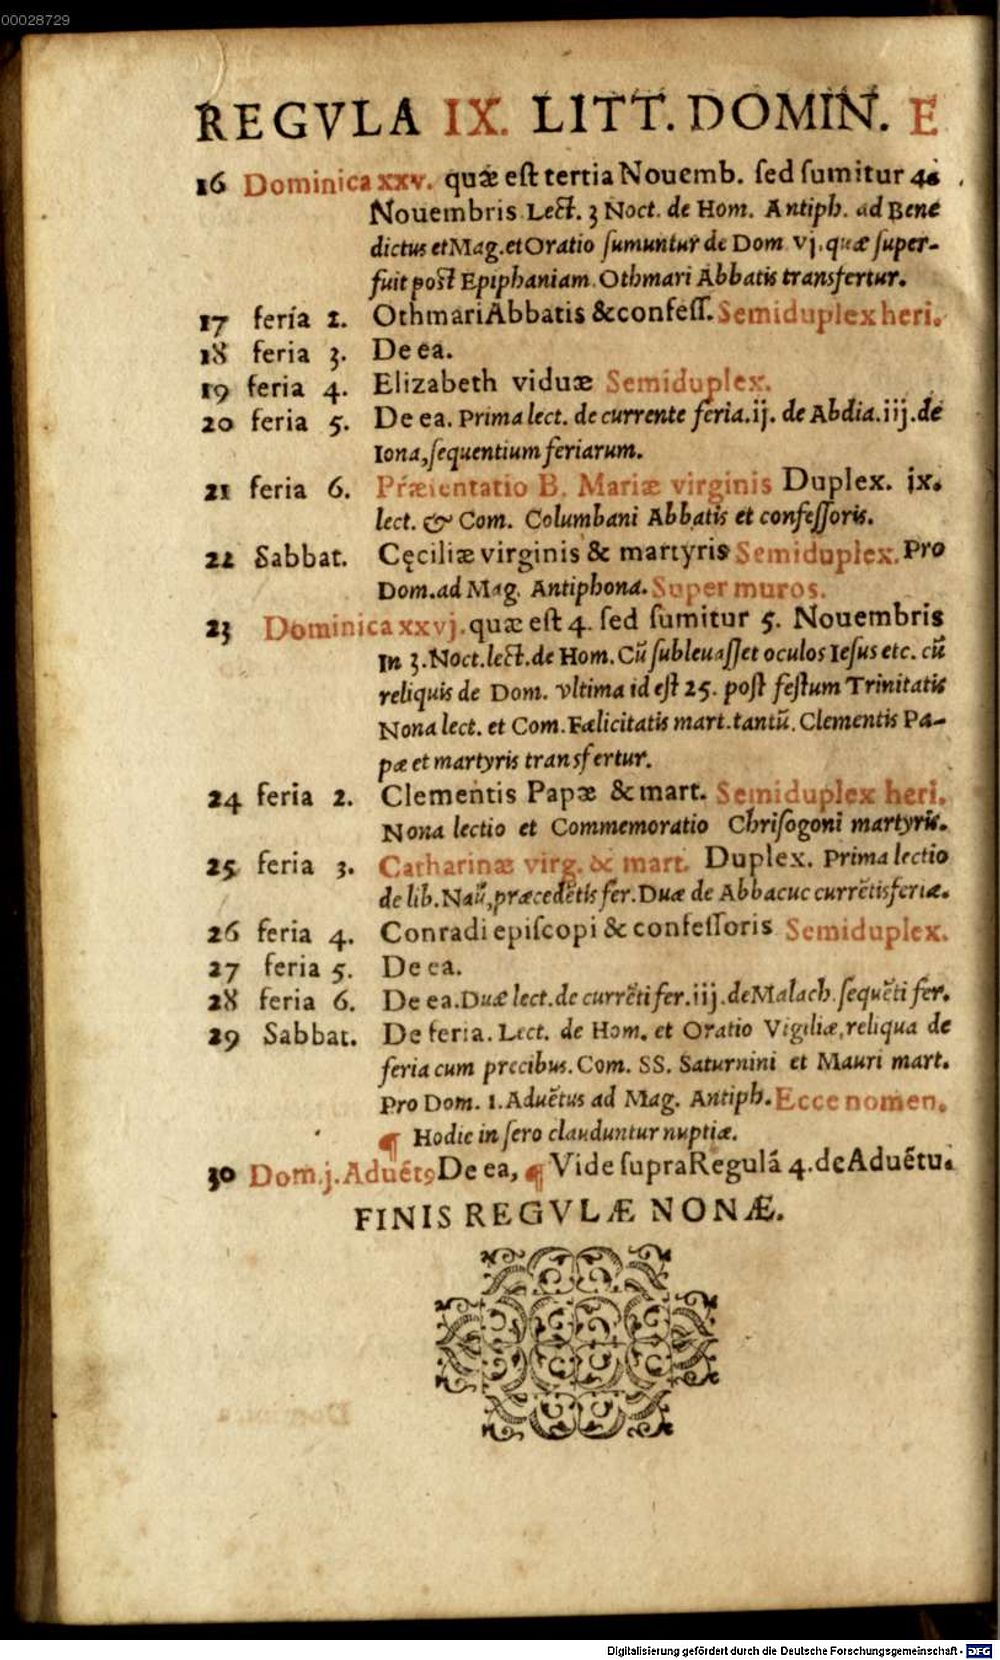 00028729
REGVLA IX. LITT. DOMIN. E
16 Dominica xxv. quæ est tertia Nouemb. sed sumitur 4.
Nouembris Lect. 3 Noct. de Hom. Antiph. ad Bene
dictus et Mag. et Oratio sumuntur de Dom vj. quæ super-
fuit post Epiphaniam. Othmari Abbatis transfertur.
17 feria 2. Othmari Abbatis & confeſſ. Semiduplex heri.
18 feria 3. De ea.
19 feria 4. Elizabeth viduæ Semiduplex.
20 feria 5. De ea. Prima lect. de currente feria. ij. de Abdia. iij. de
Iona, ſequentium feriarum.
21 feria 6. Præſentatio B. Mariæ virginis Duplex. ix.
lect. & Com. Columbani Abbatis et confeſſoris.
22 Sabbat. Cęciliæ virginis & martyris Semiduplex. Pro
Dom. ad Mag. Antiphona. Super muros.
23 Dominica xxvj. quæ eſt 4. ſed ſumitur 5. Nouembris
In 3. Noct. lect. de Hom. Cũ ſubleuaſſet oculos Ieſus etc. cũ
reliquis de Dom. vltima id eſt 25. poſt feſtum Trinitatis
Nona lect. et Com. Fælicitatis mart. tantũ. Clementis Pa-
pæ et martyris transfertur.
24 feria 2. Clementis Papæ & mart. Semiduplex heri.
Nona lectio et Commemoratio Chriſogoni martyris.
25 feria 3. Catharinæ virg. & mart. Duplex. Prima lectio
de lib. Naũ, præcedẽtis fer. Duæ de Abbacuc currẽtis feriæ.
26 feria 4. Conradi epiſcopi & confeſſoris Semiduplex.
27 feria 5. De ea.
28 feria 6. De ea. Duæ lect. de currẽti fer. iij. de Malach. ſequẽti fer.
29 Sabbat. De feria. Lect. de Hom. et Oratio Vigiliæ, reliqua de
feria cum precibus. Com. SS. Saturnini et Mauri mart.
Pro Dom. 1. Aduẽtus ad Mag. Antiph. Ecce nomen.
¶ Hodie in ſero clauduntur nuptiæ.
30 Dom. j. Aduẽtꝰ De ea, ¶ Vide ſupra Regulã 4. de Aduẽtu.
FINIS REGVLÆ NONÆ.
Digitalisierung gefördert durch die Deutsche Forschungsgemeinschaft - DFG